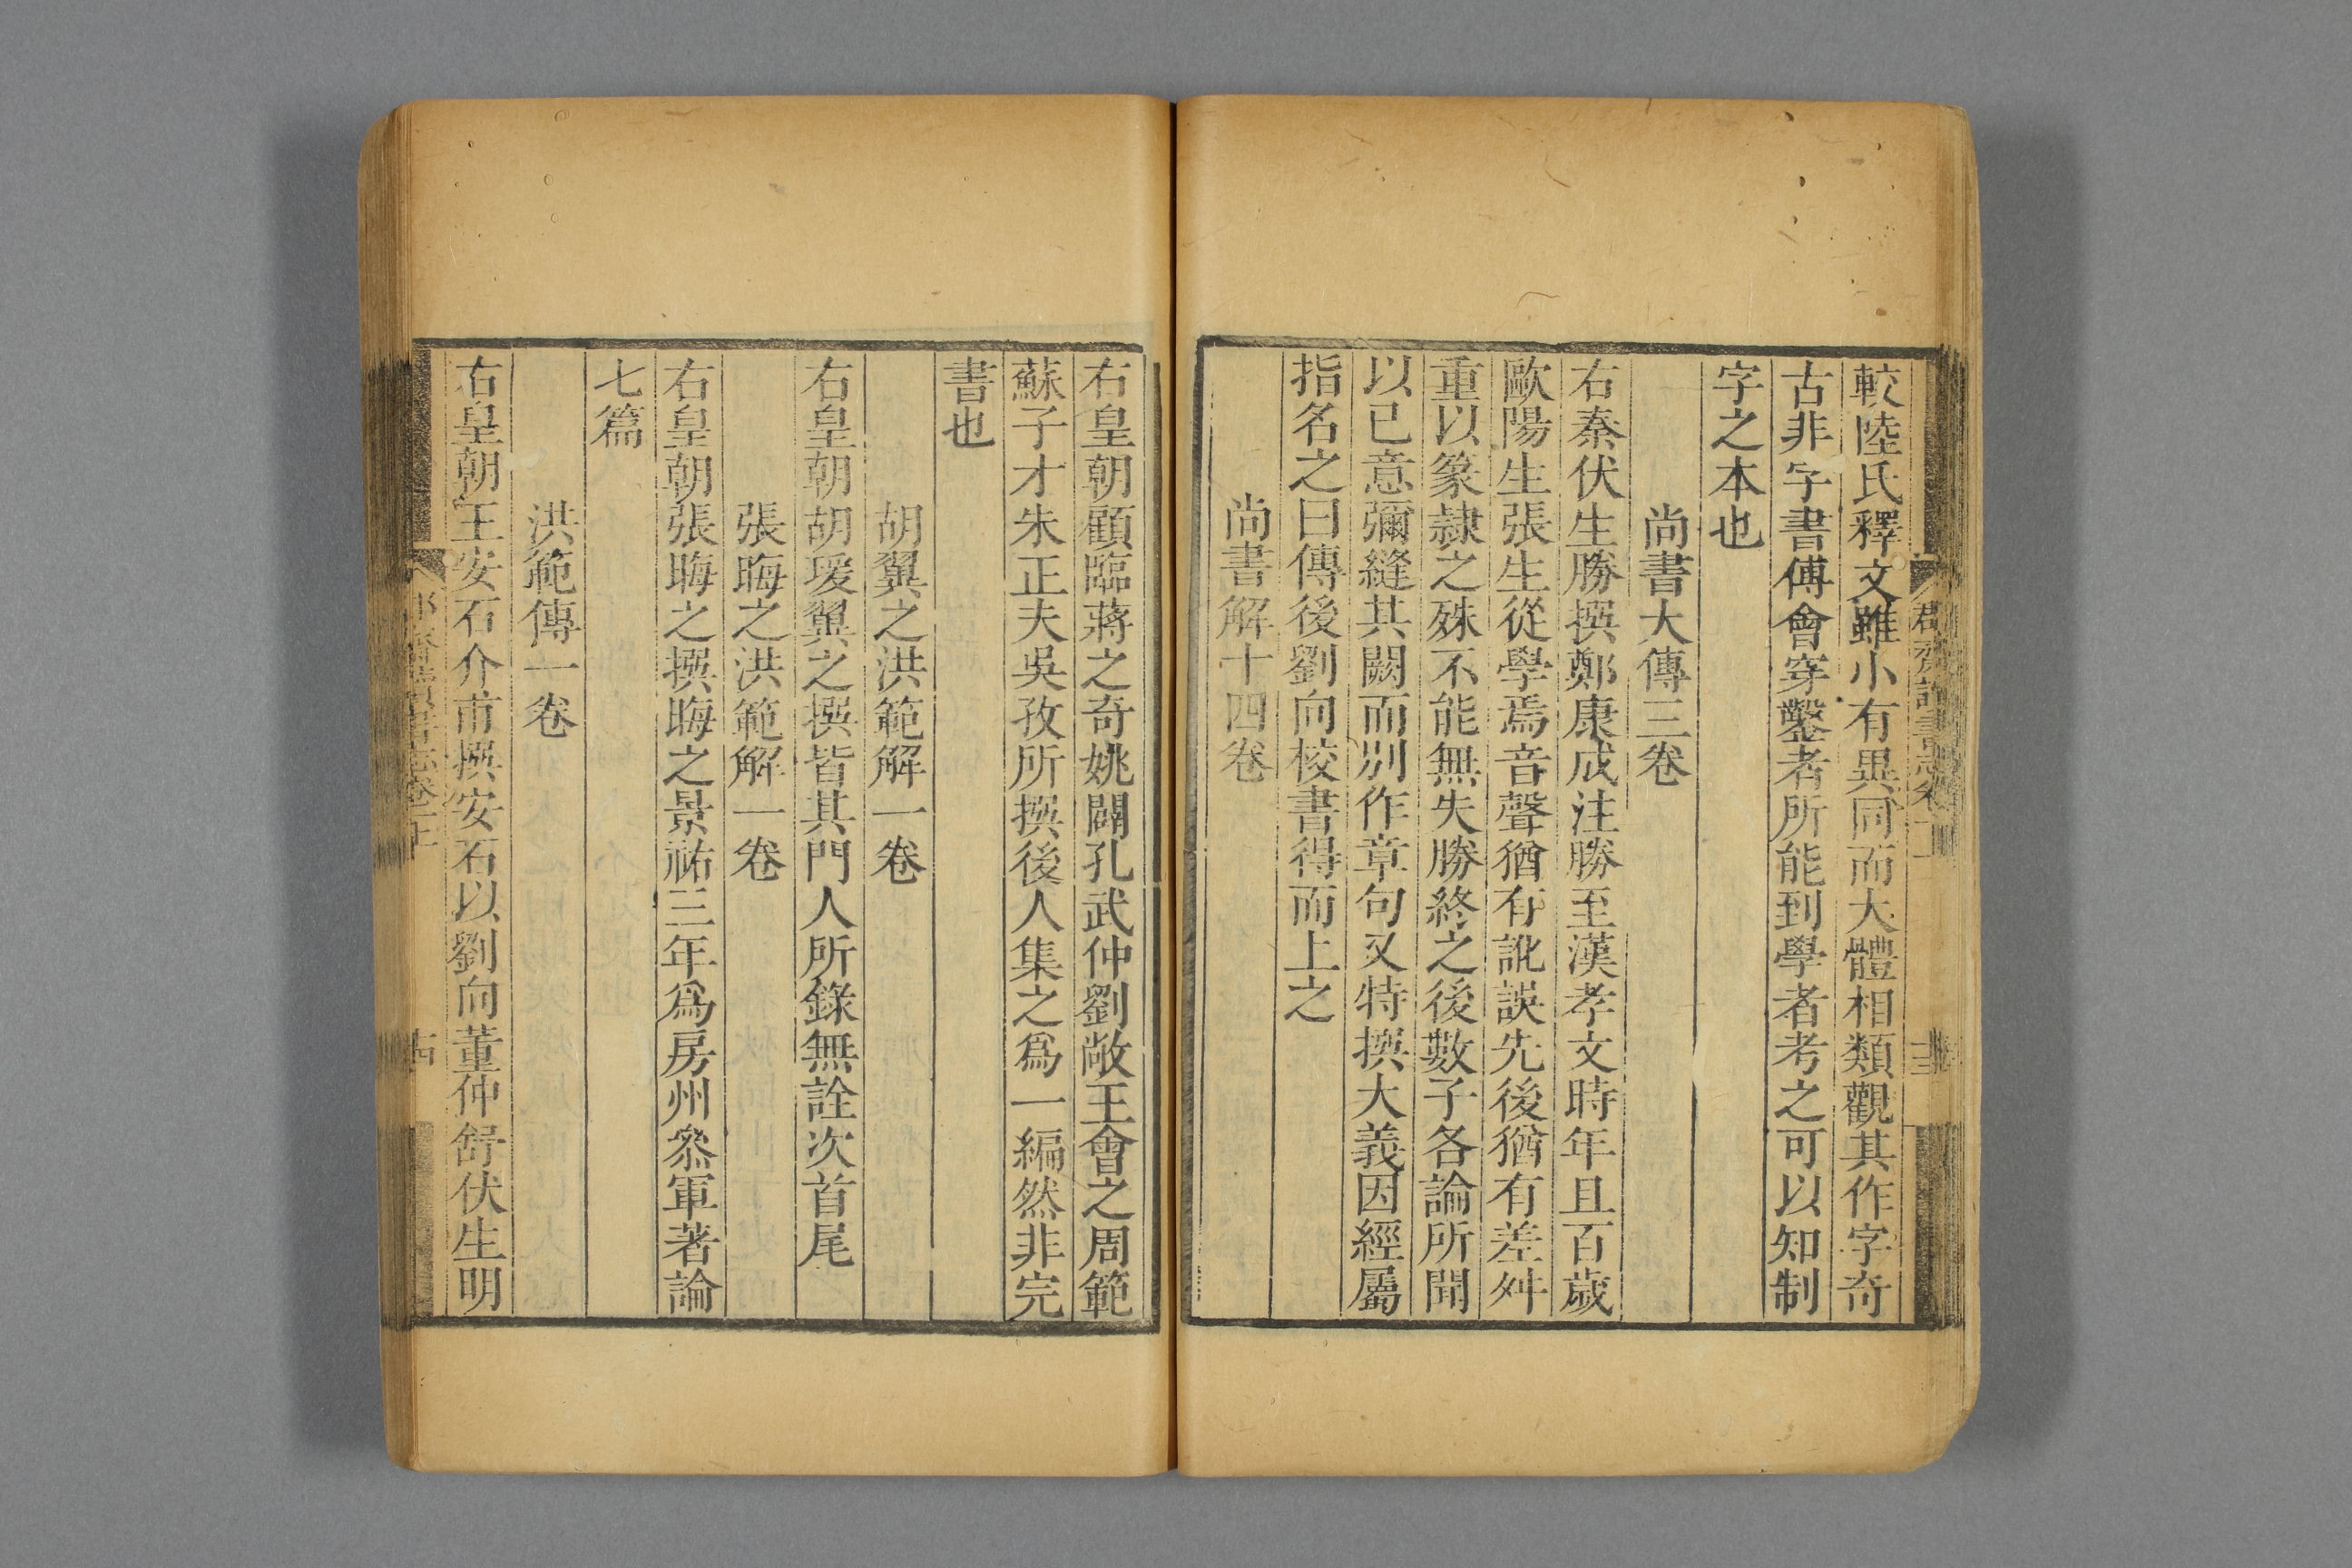 較陸氏釋文雖小有異同而大體相類觀其作字奇
古非字書傅會穿鑿者所能到學者考之可以知制
字之本也
尚書大傳三卷
右秦伏生勝撰鄭康成注勝至漢孝文時年且百歲
歐陽生張生從學焉音聲猶有訛誤先後猶有差舛
重以篆隷之殊不能無失勝終之後數子各論所聞
以已意彌縫其闕而别作章句又特撰大義因經屬
指名之曰傳後劉向校書得而上之
尚書解十四卷
右皇朝顧臨蔣之奇姚闢孔武仲劉敞王會之周範
蘇子才朱正夫吳孜所撰後人集之爲一編然非完
書也
胡翼之洪範解一卷
右皇朝胡瑗翼之撰皆其門人所錄無詮次首尾
張晦之洪範解一卷
右皇朝張晦之撰晦之景祐三年爲房州叅軍著論
七篇
洪範傳一卷
右皇朝王安石介甫撰安石以劉向董仲舒伏生明